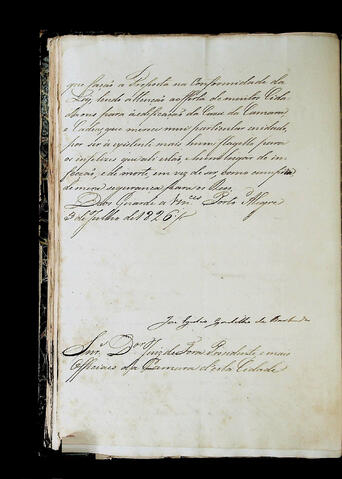 que facão a Proposta na Conformidade da
Ley, tendo attenção a offerta de muitos Cida-
daons para a edificação da Casa da Camara
e Cadea, que merece mui particular cuidado,
por ser a existente mais hum flagello para
os infelizes que ali estão, e hum lugar de in-
fecção, e de morte, em vez de ser, como cumpria
de mera segurança para os Reos.
Deos Guarde a Vm.ces Porto Alegre
3 de Julho de 1826
Snr. Dor. Juiz de Fora Presidente, e mais
Officiaes da Camara d'esta Cidade